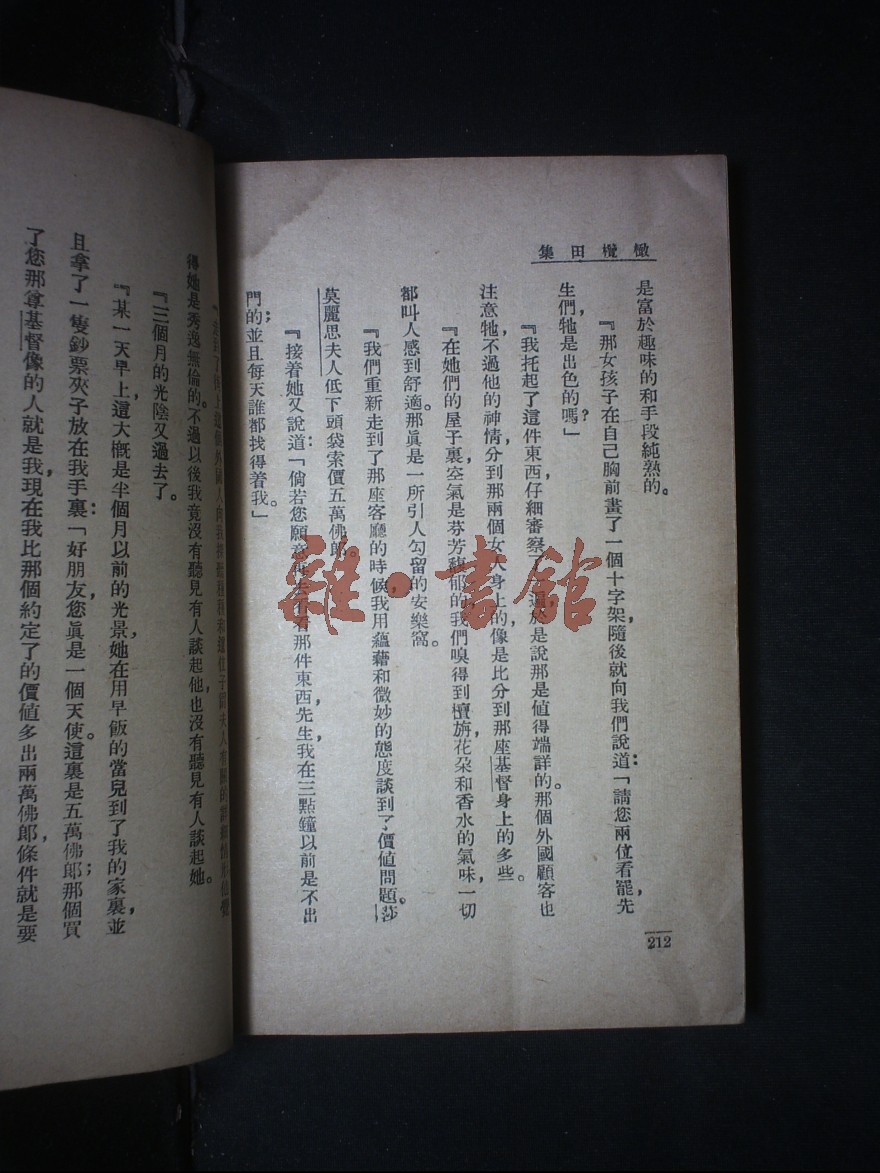 橄欖田集
是富於趣味的和手段純熟的。
『那女孩子在自己胸前畫了一個十字架，隨後就向我們說道：「請您兩位看罷，先
生們，牠是出色的嗎？」
『我托起了這件東西仔細審察了
於是說那是値得端詳的。那個外國顧客也
注意牠，不過他的神情分到那兩個女人身上的像是比分到那座基督身上的多些。
『在她們的屋子裏，空氣是芬芳馥郁的，我們嗅得到檀旃花朵和香水的氣味，一切
都叫人感到舒適。那眞是一所引人勾留的安樂窩。
『我們重新走到了那座客廳的時候，我用蘊藉和微妙的態度談到了價値問題。莎
莫麗思夫人低下頭袋索價五萬佛郎。
『接着她又說道：「倘若您願意再去看看那件東西，先生，我在三點鐘以前是不出
門的；並且每天誰都找得着我。」
212
得她是秀逸無倫的。不過以後我竟沒有聽見有人談起他，也沒有聽見有人談起她。
『三個月的光陰又過去了。
『某一天早上，這大槪是半個月以前的光景，她在用早飯的當兒到了我的家裏，並
且拿了一隻鈔票夾子放在我手裏：「好朋友，您眞是一個天使。這裏是五萬佛郎；那個買
了您那尊基督像的人就是我，現在我比那個約定了的價値多出兩萬佛郎，條件就是要
雜·書館